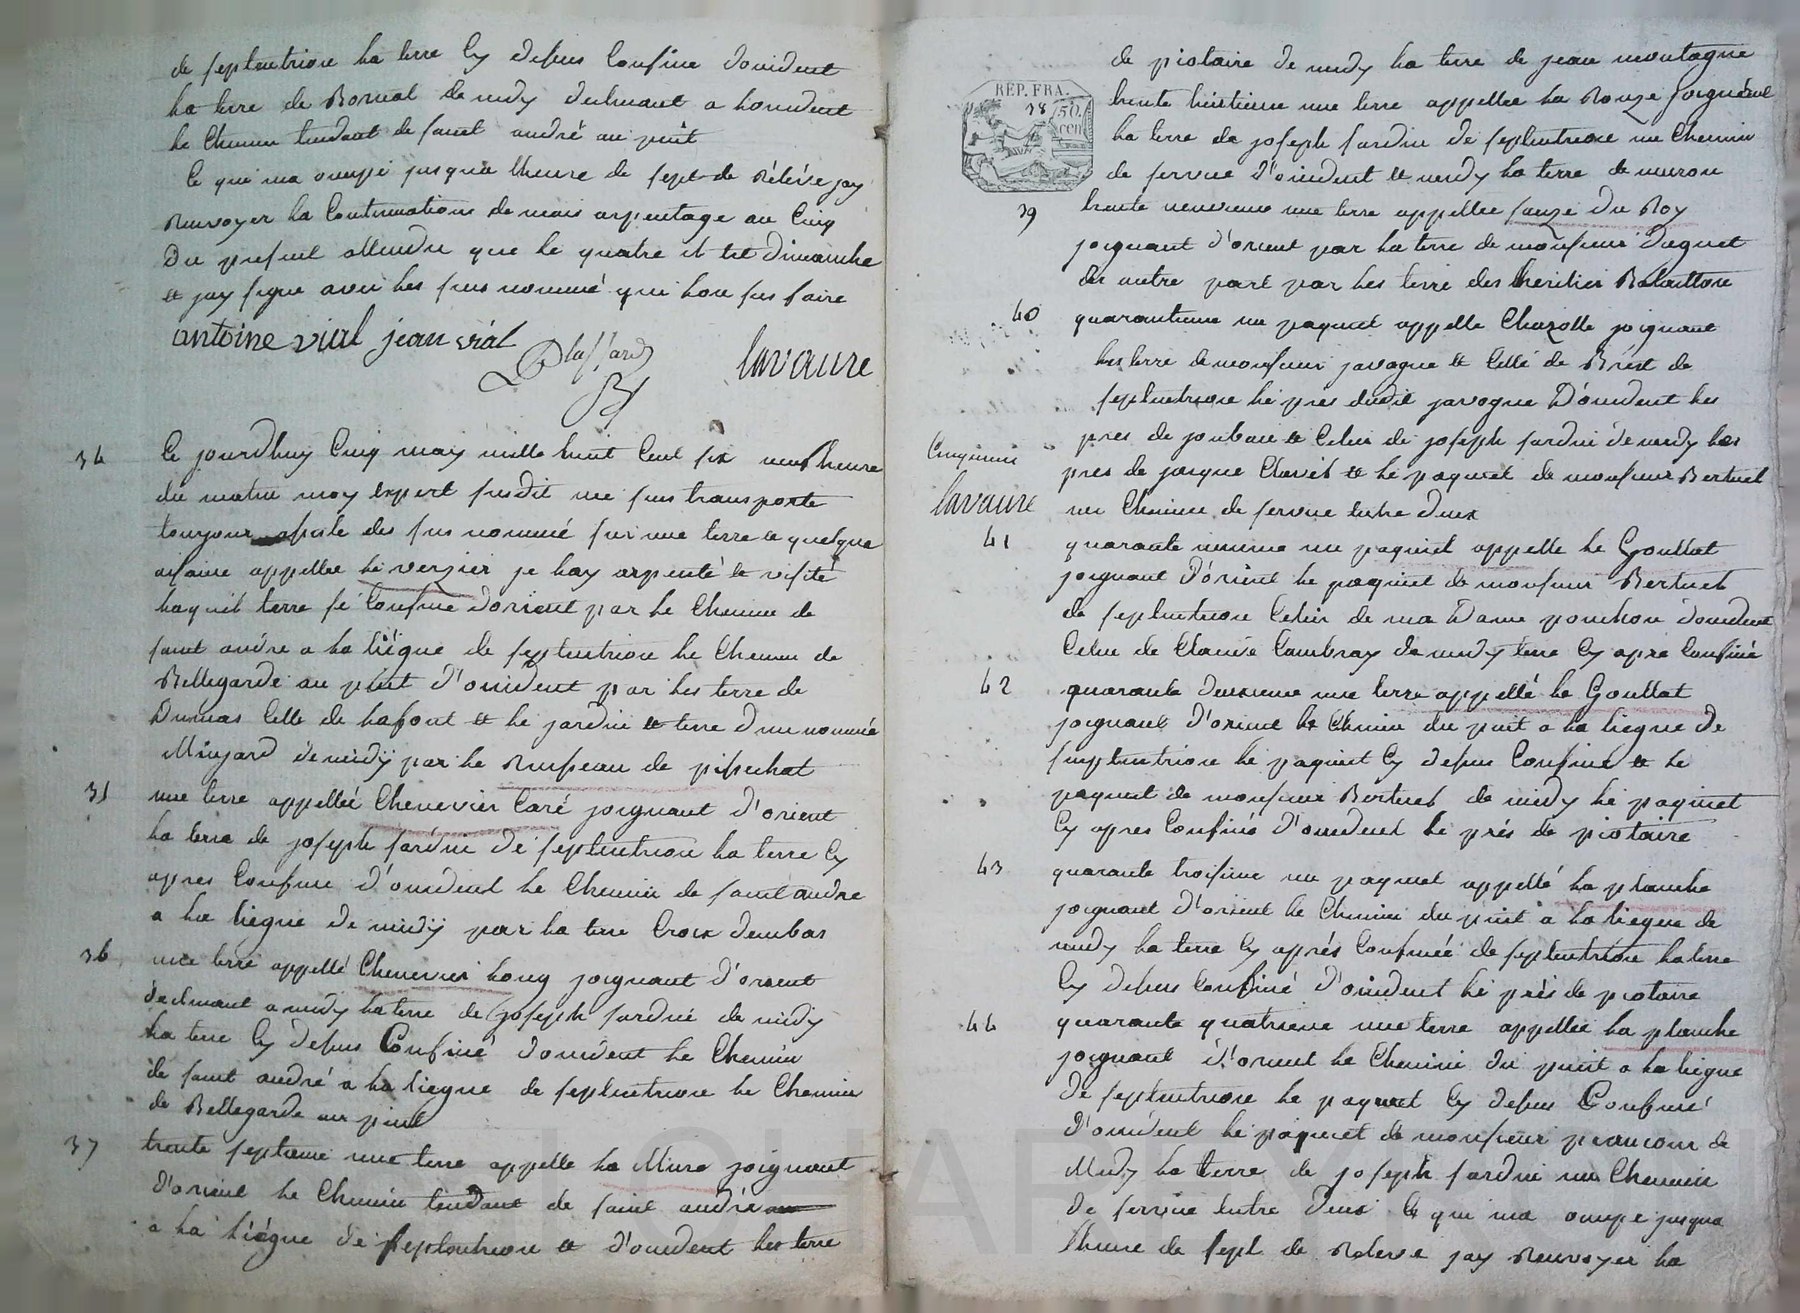 de septentrion la terre cy desus confine doccident
la terre de Bornat de midy declinant a loccident
le Chemin tendant de saint andré au puit
Ce qui ma occupé jusqua lheure de sept de Rélévé jay
Renvoyer la Continuation de mais arpentage au Cinq
Du presnit attendu que le quatre il est Dimanche
et jay signe avec les sus nommé qui lon sus faire
antoine vial jean vial
lavaure
34 Ce jourdhuy Cinq may mille huit Cent six neuf heure
du matin moy expert susdit me suis transporte
toujour asisté des sus nommé sur une terre et quelque
aisaire appellee le verzier je lay arpenté et visité
laquel terre se confine dorient par le Chemin de
saint andre a la liègue de septentrion le Chemin de
Bellegarde au puit d'occident par les terre de
Dumas Celle de lafont et le jardin et terre dun nommé
Minjard de midÿ par le Ruiseau de pisechat
35 une terre appelleé Chenevier Caré joignant d'orient
la terre de joseph sardin de septentrion la terre Cy
apres Confine d'occident le Chemin de saint andre
a la liegue de midÿ par la terre Croix dembas
36 une terre appellé Chenevier long joignant d'orient
declinant a midy la terre de joseph sardin de midy
la terre Cy desus Confiné doccident le Chemin
de saint andré a la liegue de septentrion le Chemin
de Bellegarde au puit
37 trente septieme une terre appelle la Mure joignant
d'orient le Chemin tendant de saint andré
a la liégue de septentrion et d'occident les terre
REP. FRA.
50 cen
de piotaire de midy la terre de jean montagne
trente huitieme une terre appellee la Ronze joignant
la terre de joseph sardin de septentrion un Chemin
de servue d'occident et midy la terre de muron
39 trente neuvieme une terre appellee sauze du Roy
joignant d'orient par la terre de monsieur duguet
des autre part par les terre des heritier Bataillon
40 quarantieme un paquiet appelle Chazotte joignant
les terre de monsieur javogue et Celle de Brést de
septentrion le pres dudit javogue D'occident les
pres de joubau et Celui de joseph sardin de midy les
Cinquieme
pres de jacque Clavel et le paquiet de monsieur Bertuel
lavaure
un Chemin de servue entre deux
41 quarante unieme un paquiet appelle le Gouttat
joignant D'orient le paquiet de monsieur Bertuel
de septentrion Celui de ma Dame ponchon doccident
Celui de Claude Cambray de midy terre Cy apre Confiné
42 quarante deuxieme une terre appellé le Gouttat
joignant d'orient le Chemin du puit a la liegue de
septentrion le paquiet Cy desus Confiné et le
paquiet de monsieur Bertuel de midy le paquiet
Cy apres Confiné d'occident le prés de piotaire
43 quarante troisieme un paquiet appellé la planche
joignant d'orient le Chemin du puit a la liegue de
midy la terre Cy aprés Confineé de septentrion la terre
Cy desus Confiné D'occident le prés de piotaire
44 quarante quatrieme une terre appellee la planche
joignant d'orient le Chemin du puit a la liegue
de septentrion le paquiet Cy desus Confiné
d'occident le paquiet de monsieur
de
Midy la terre de joseph sardin un Chemin
de servue entre deux Ce qui ma occupe jusqua
lheure de sept de Relevé jay Renvoyer la